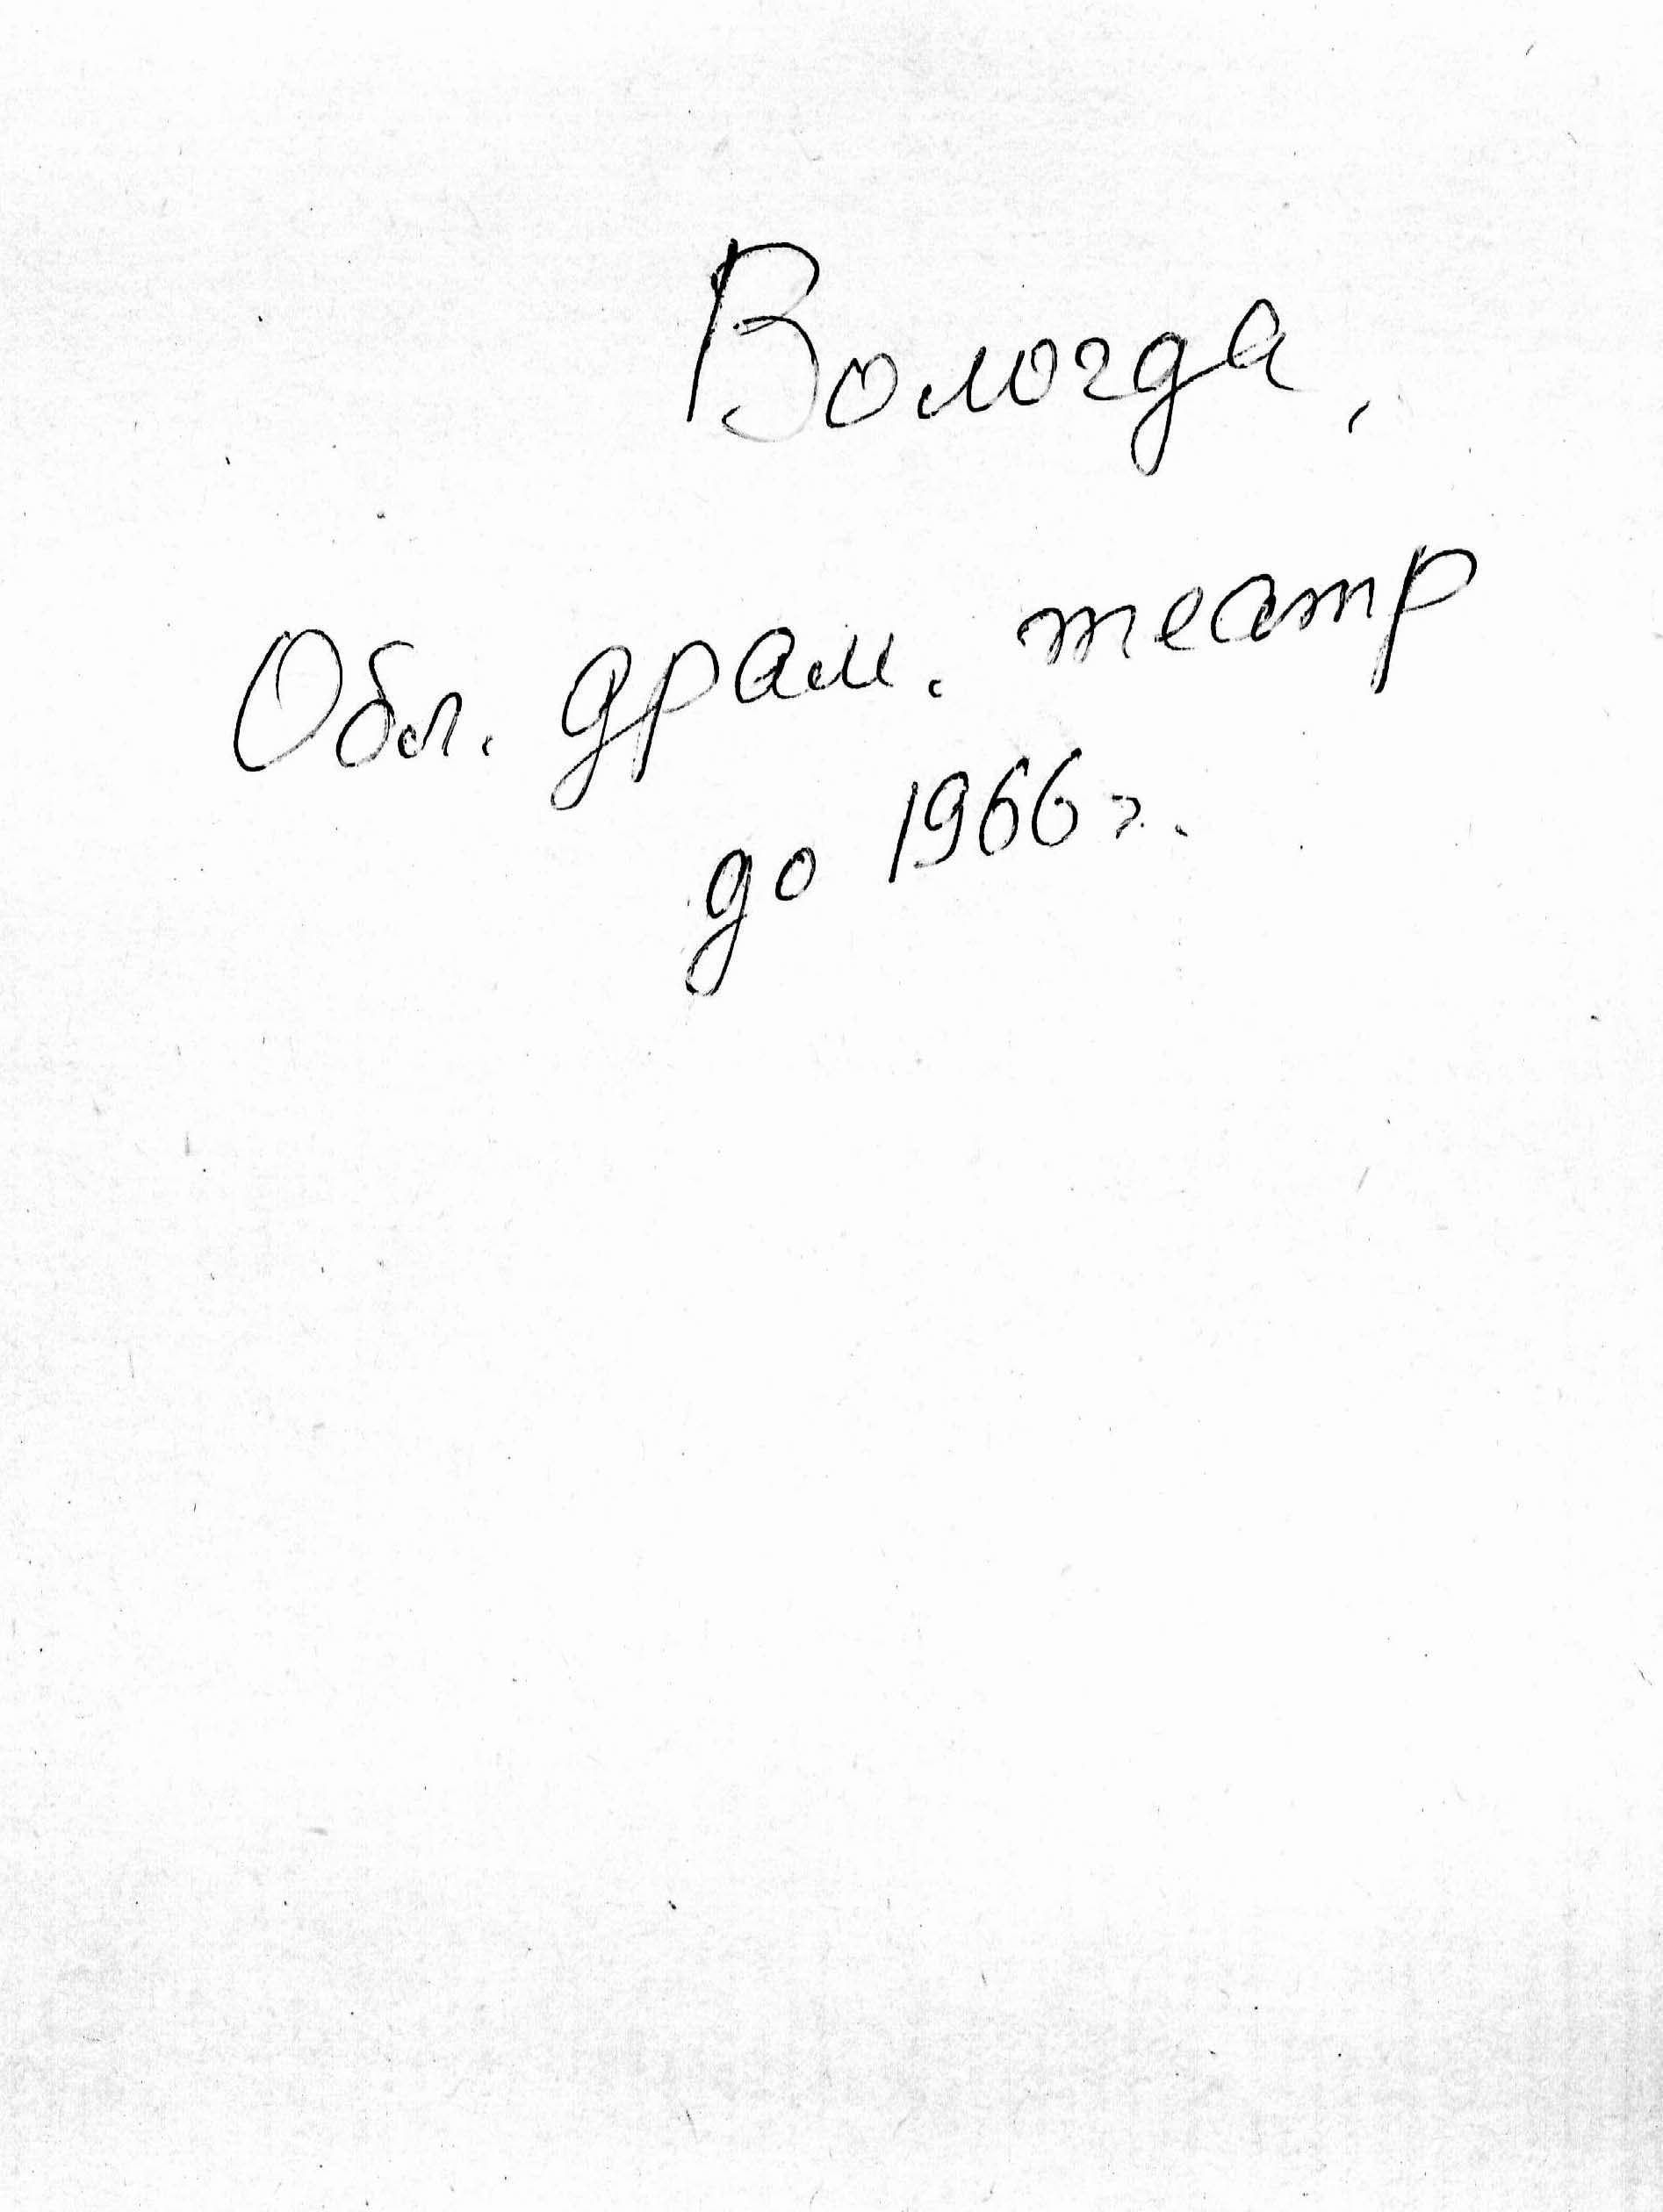 Вологда,
Обл. драм. театр
до 1966 г.